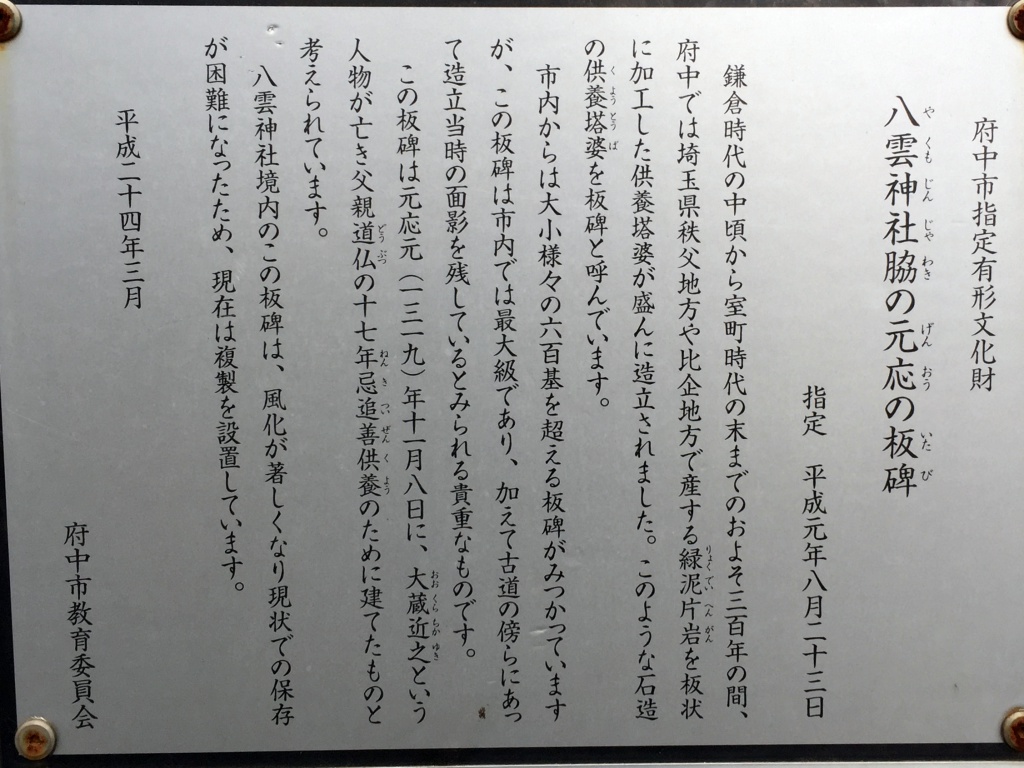 府中市指定有形文化財
八雲神社脇の元応の板碑
やくもじんじゃわき げんおう いたび
指定　平成元年八月二十三日
鎌倉時代の中頃から室町時代の末までのおよそ三百年の間、
府中では埼玉県秩父地方や比企地方で産する緑泥片岩を板状
りょくでいへんがん
に加工した供養塔婆が盛んに造立されました。このような石造
の供養塔婆を板碑と呼んでいます。
くようとうば
市内からは大小様々の六百基を超える板碑がみつかっています
が、この板碑は市内では最大級であり、加えて古道の傍らにあっ
て造立当時の面影を残しているとみられる貴重なものです。
この板碑は元応元（一三一九）年十一月八日に、大蔵近之という
おおくらちかゆき
人物が亡き父親道仏の十七年忌追善供養のために建てたものと
どうぶつ ねんきついぜんくよう
考えられています。
八雲神社境内のこの板碑は、風化が著しくなり現状での保存
が困難になったため、現在は複製を設置しています。
平成二十四年三月
府中市教育委員会